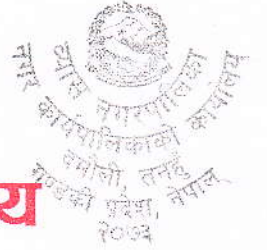 व्यास नगरपालिका
नगर कार्यपालिकाको कार्यालय
दमौली तनहुँ
गण्डकी प्रदेश, नेपाल
२०७३
य